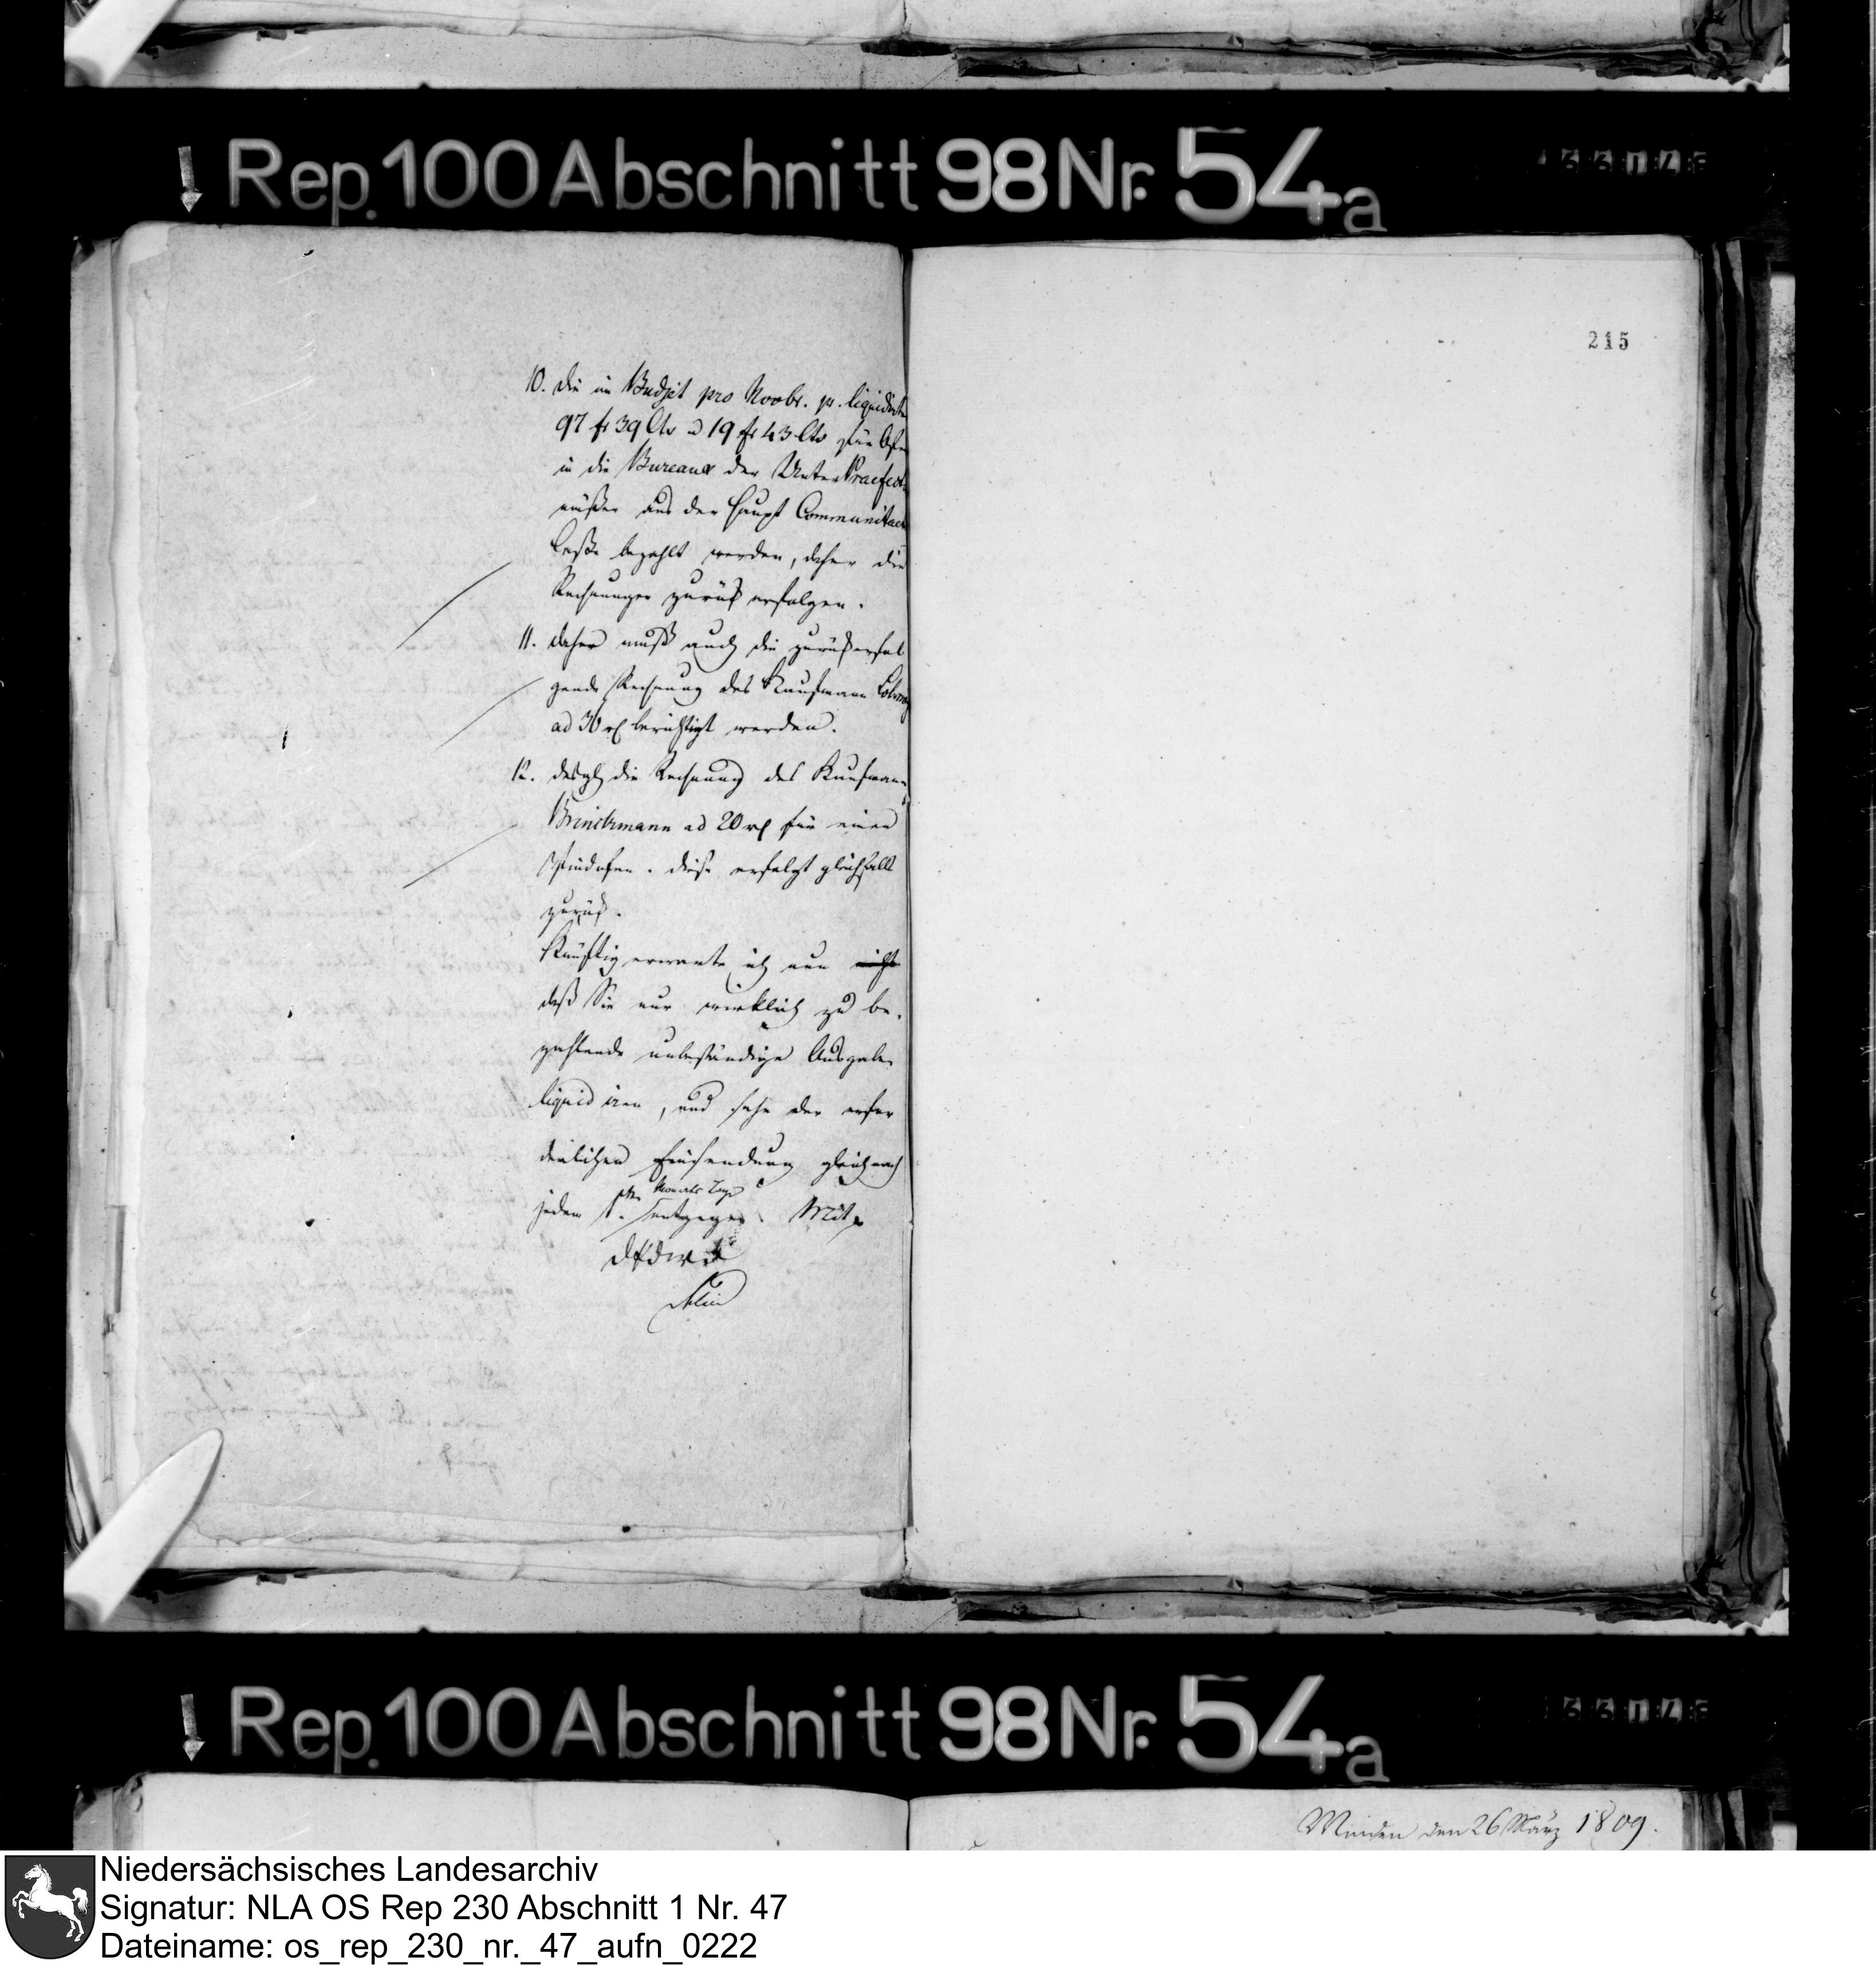 Rep. 100 Abschnitt 98 Nr. 54a
215
10. die im Budjet pro Novbr. pr. liquidirten
97 fr 39 Cts u 19 fr 43 Cts für Ofen
in die Bureaux der Unter Praefect
müßen aus der Haupt Communitaets
Casse bezahlt werden, daher die
Rechnungen zurück erfolgen.
11. daher muß auch die zurück erfol
gende Rechnung des Kaufmann
ad 30 rl berichtigt werden.
12. desgl. die Rechnung des Kaufmann
Brinckmann ad 20 rl für einen
Windofen. diese erfolgt gleichfalls
zurück.
Künftig erwarte ich nun nicht
daß Sie nur wirklich zu be-
zahlende unbeständige Ausgaben
liquidiren, und sehe der erfor
derlichen Einsendung gleich nach
jedem 1. Monats Tage
entgegen. Mit
Rep. 100 Abschnitt 98 Nr. 54a
Minden den 26 März 1809.
Niedersächsisches Landesarchiv
Signatur: NLA OS Rep 230 Abschnitt 1 Nr. 47
Dateiname: os_rep_230_nr._47_aufn_0222